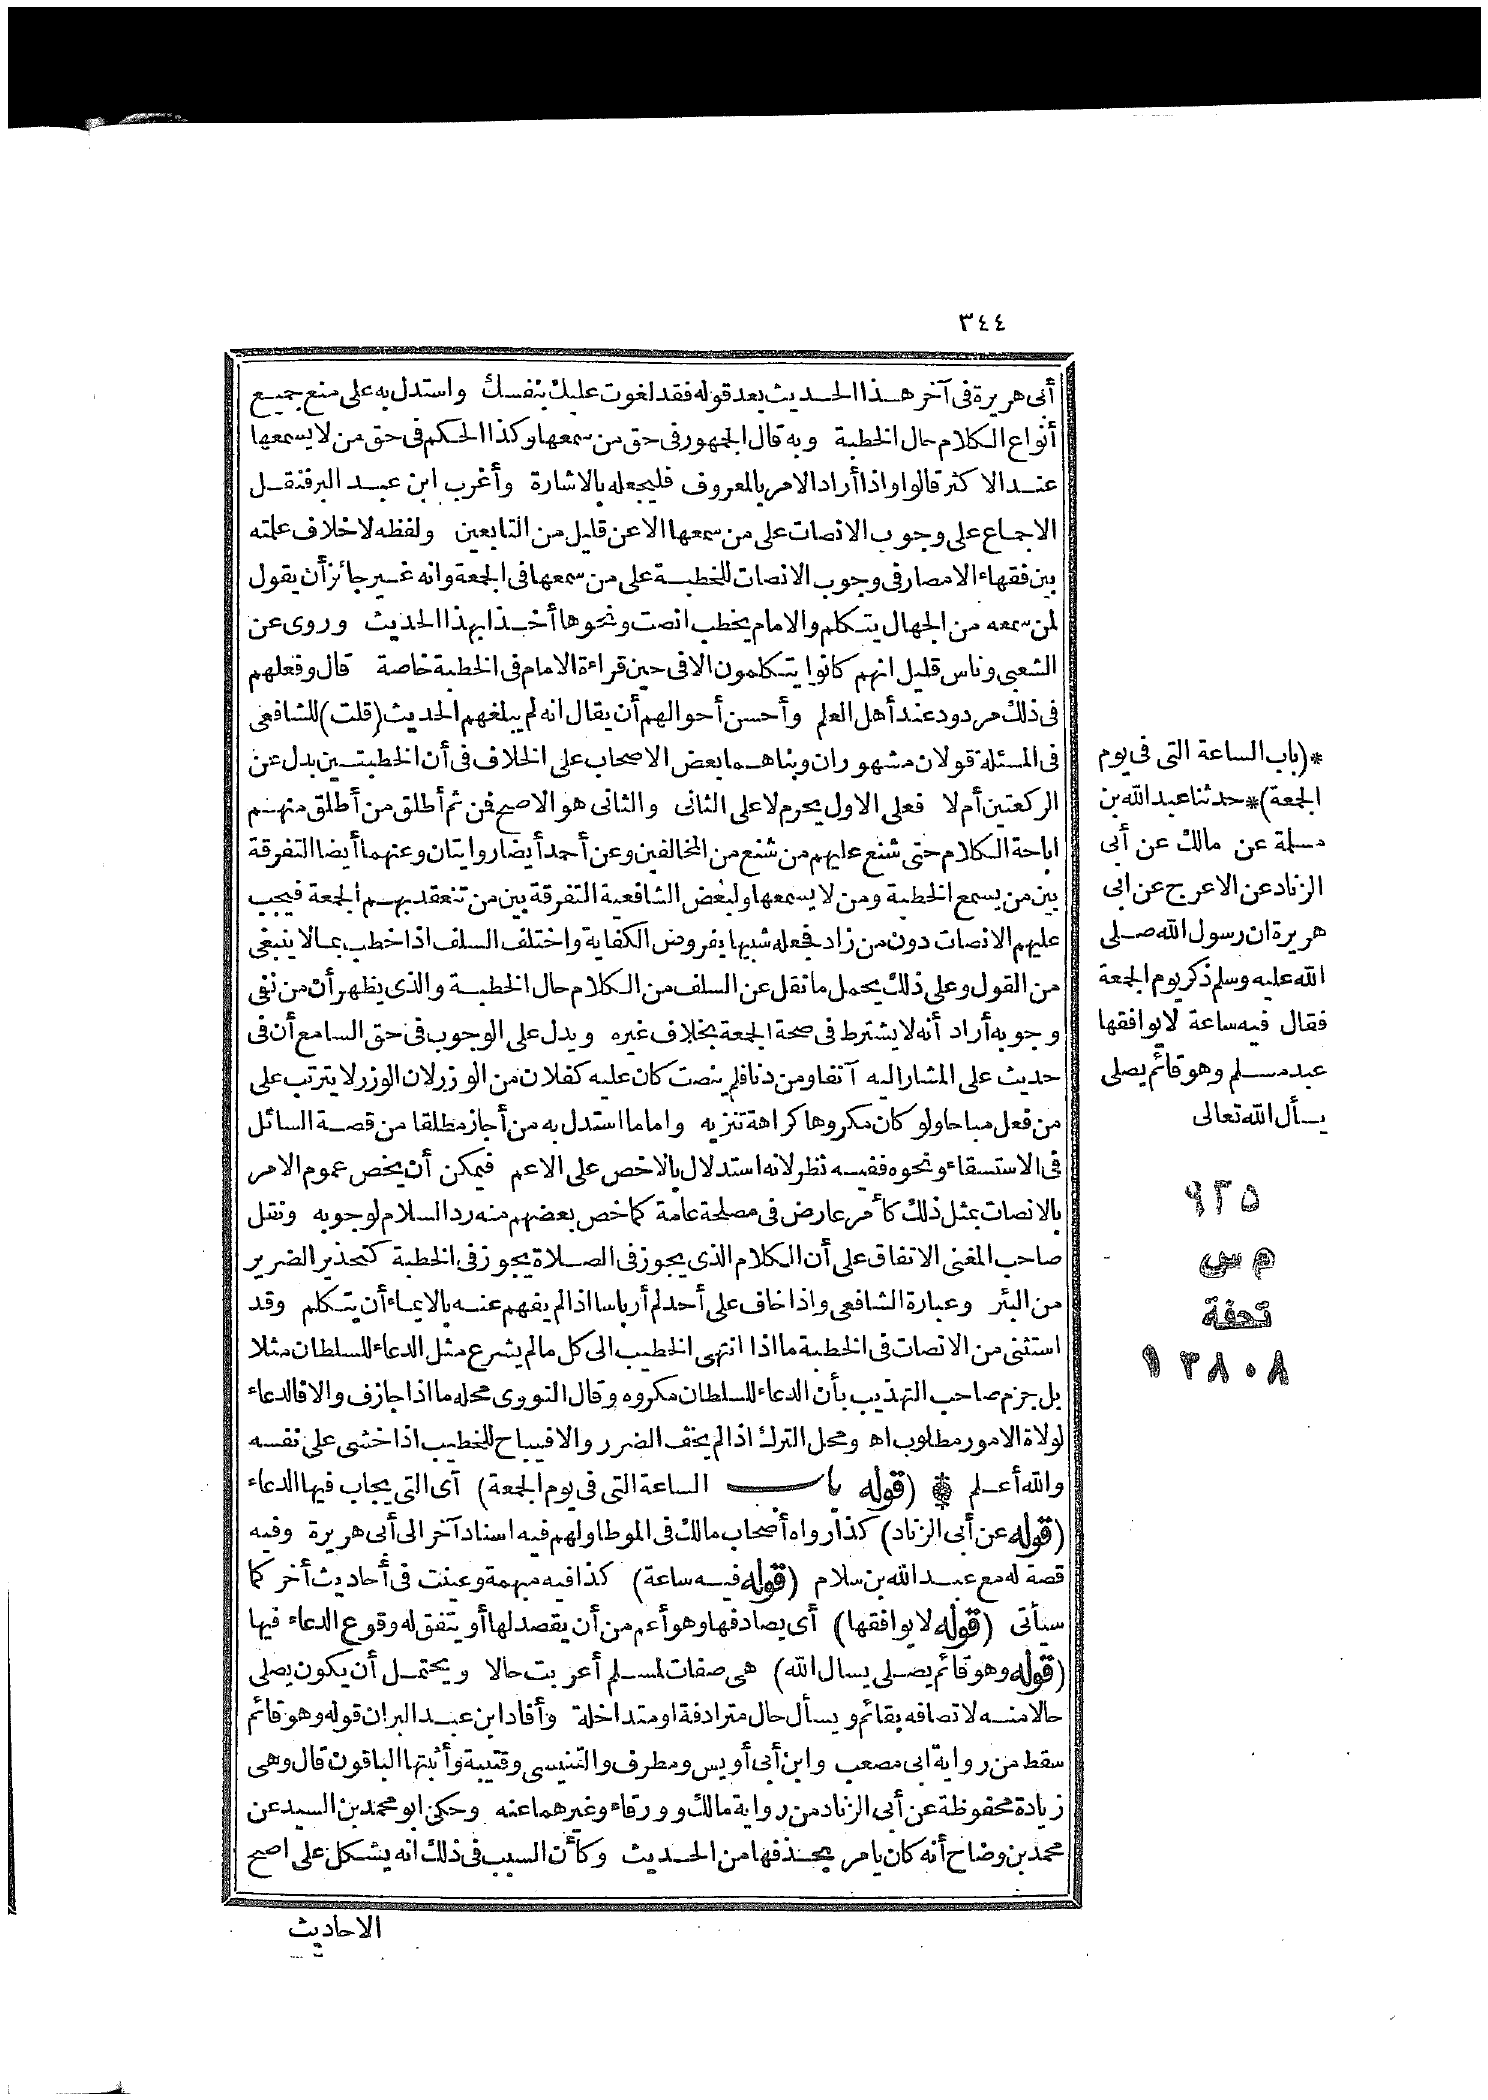 ٣٤٤
أبى هريرة فى آخر هذا الحديث بعد قوله فقد لغوت عليك بنفسك واستدل به على منع جميع
أنواع الكلام حال الخطبة وبه قال الجمهور فى حق من سمعها وكذا الحكم فى حق من لا يسمعها
عند الاكثر قالوا واذا أراد الامر بالمعروف فليجعله بالاشارة وأغرب ابن عبد البر فنقل
الاجماع على وجوب الانصات على من سمعها الا عن قليل من التابعين ولفظه لا خلاف علمته
بين فقهاء الامصار فى وجوب الانصات للخطبة على من سمعها فى الجمعة وانه غير جائز أن يقول
لمن سمعه من الجهال يتكلم والامام يخطب انصت ونحوها أخذا بهذا الحديث وروى عن
الشعبى وناس قليل انهم كانوا يتكلمون الا فى حين قراءة الامام فى الخطبة خاصة قال وفعلهم
فى ذلك مردود عند أهل العلم وأحسن أحوالهم أن يقال انه لم يبلغهم الحديث (قلت) للشافعى
فى المسئلة قولان مشهوران وبناهما بعض الاصحاب على الخلاف فى أن الخطبتين بدل عن
الركعتين أم لا فعلى الاول يحرم لا على الثانى والثانى هو الاصح فمن ثم أطلق من أطلق منهم
اباحة الكلام حتى شنع عليهم من شنع من المخالفين وعن أحمد أيضا روايتان وعنهما أيضا التفرقة
بين من يسمع الخطبة ومن لا يسمعها ولبعض الشافعية التفرقة بين من تنعقد بهم الجمعة فيجب
عليهم الانصات دون من زاد فجعله شبيها بفروض الكفاية واختلف السلف اذا خطب بما لا ينبغى
من القول وعلى ذلك يحمل ما نقل عن السلف من الكلام حال الخطبة والذى يظهر أن من نفى
وجوبه أراد أنه لا يشترط فى صحة الجمعة بخلاف غيره ويدل على الوجوب فى حق السامع أن فى
حديث على المشار اليه آنفا ومن دنا فلم ينصت كان عليه كفلان من الوزر لان الوزر لا يترتب على
من فعل مباحا ولو كان مكروها كراهة تنزيه واما ما استدل به من أجاز مطلقا من قصة السائل
فى الاستسقاء ونحوه ففيه نظر لانه استدلال بالاخص على الاعم فيمكن أن يخص عموم الامر
بالانصات بمثل ذلك كأمر عارض فى مصلحة عامة كما خص بعضهم منه رد السلام لوجوبه ونقل
صاحب المغنى الاتفاق على أن الكلام الذى يجوز فى الصلاة يجوز فى الخطبة كتحذير الضرير
من البئر وعبارة الشافعى واذا خاف على أحد لم أر باسا اذا لم يفهم عنه بالايماء أن يتكلم وقد
استثنى من الانصات فى الخطبة ما اذا انتهى الخطيب الى كل ما لم يشرع مثل الدعاء للسلطان مثلا
بل جزم صاحب التهذيب بأن الدعاء للسلطان مكروه وقال النووى محله ما اذا جازف والا فالدعاء
لولاة الامور مطلوب اه ومحل الترك اذا لم يخف الضرر والا فيباح للخطيب اذا خشى على نفسه
والله أعلم ❊ (قوله باب الساعة التى فى يوم الجمعة) أى التى يجاب فيها الدعاء
(قوله عن أبى الزناد) كذا رواه أصحاب مالك فى الموطا ولهم فيه اسناد آخر الى أبى هريرة وفيه
قصة له مع عبد الله بن سلام (قوله فيه ساعة) كذا فيه مبهمة وعينت فى أحاديث أخر كما
سيأتى (قوله لا يوافقها) أى يصادفها وهو أعم من أن يقصد لها أو يتفق له وقوع الدعاء فيها
(قوله وهو قائم يصلى يسال الله) هى صفات لمسلم أعربت حالا ويحتمل أن يكون يصلى
حالا منه لاتصافه بقائم ويسأل حال مترادفة او متداخلة وأفاد ابن عبد البر ان قوله وهو قائم
سقط من رواية ابى مصعب وابن أبى أويس ومطرف والتنيسى وقتيبة وأثبتها الباقون قال وهى
زيادة محفوظة عن أبى الزناد من رواية مالك وورقاء وغيرهما عنه وحكى ابو محمد بن السيد عن
محمد بن وضاح أنه كان يامر بحذفها من الحديث وكأن السبب فى ذلك انه يشكل على اصح
الاحاديث
*(باب الساعة التى فى يوم
الجمعة)* حدثنا عبد الله بن
مسلمة عن مالك عن أبى
الزناد عن الاعرج عن ابى
هريرة ان رسول الله صلى
الله عليه وسلم ذكر يوم الجمعة
فقال فيه ساعة لا يوافقها
عبد مسلم وهو قائم يصلى
يسأل الله تعالى
٩٣٥
م س
تحفة
١٣٨٠٨